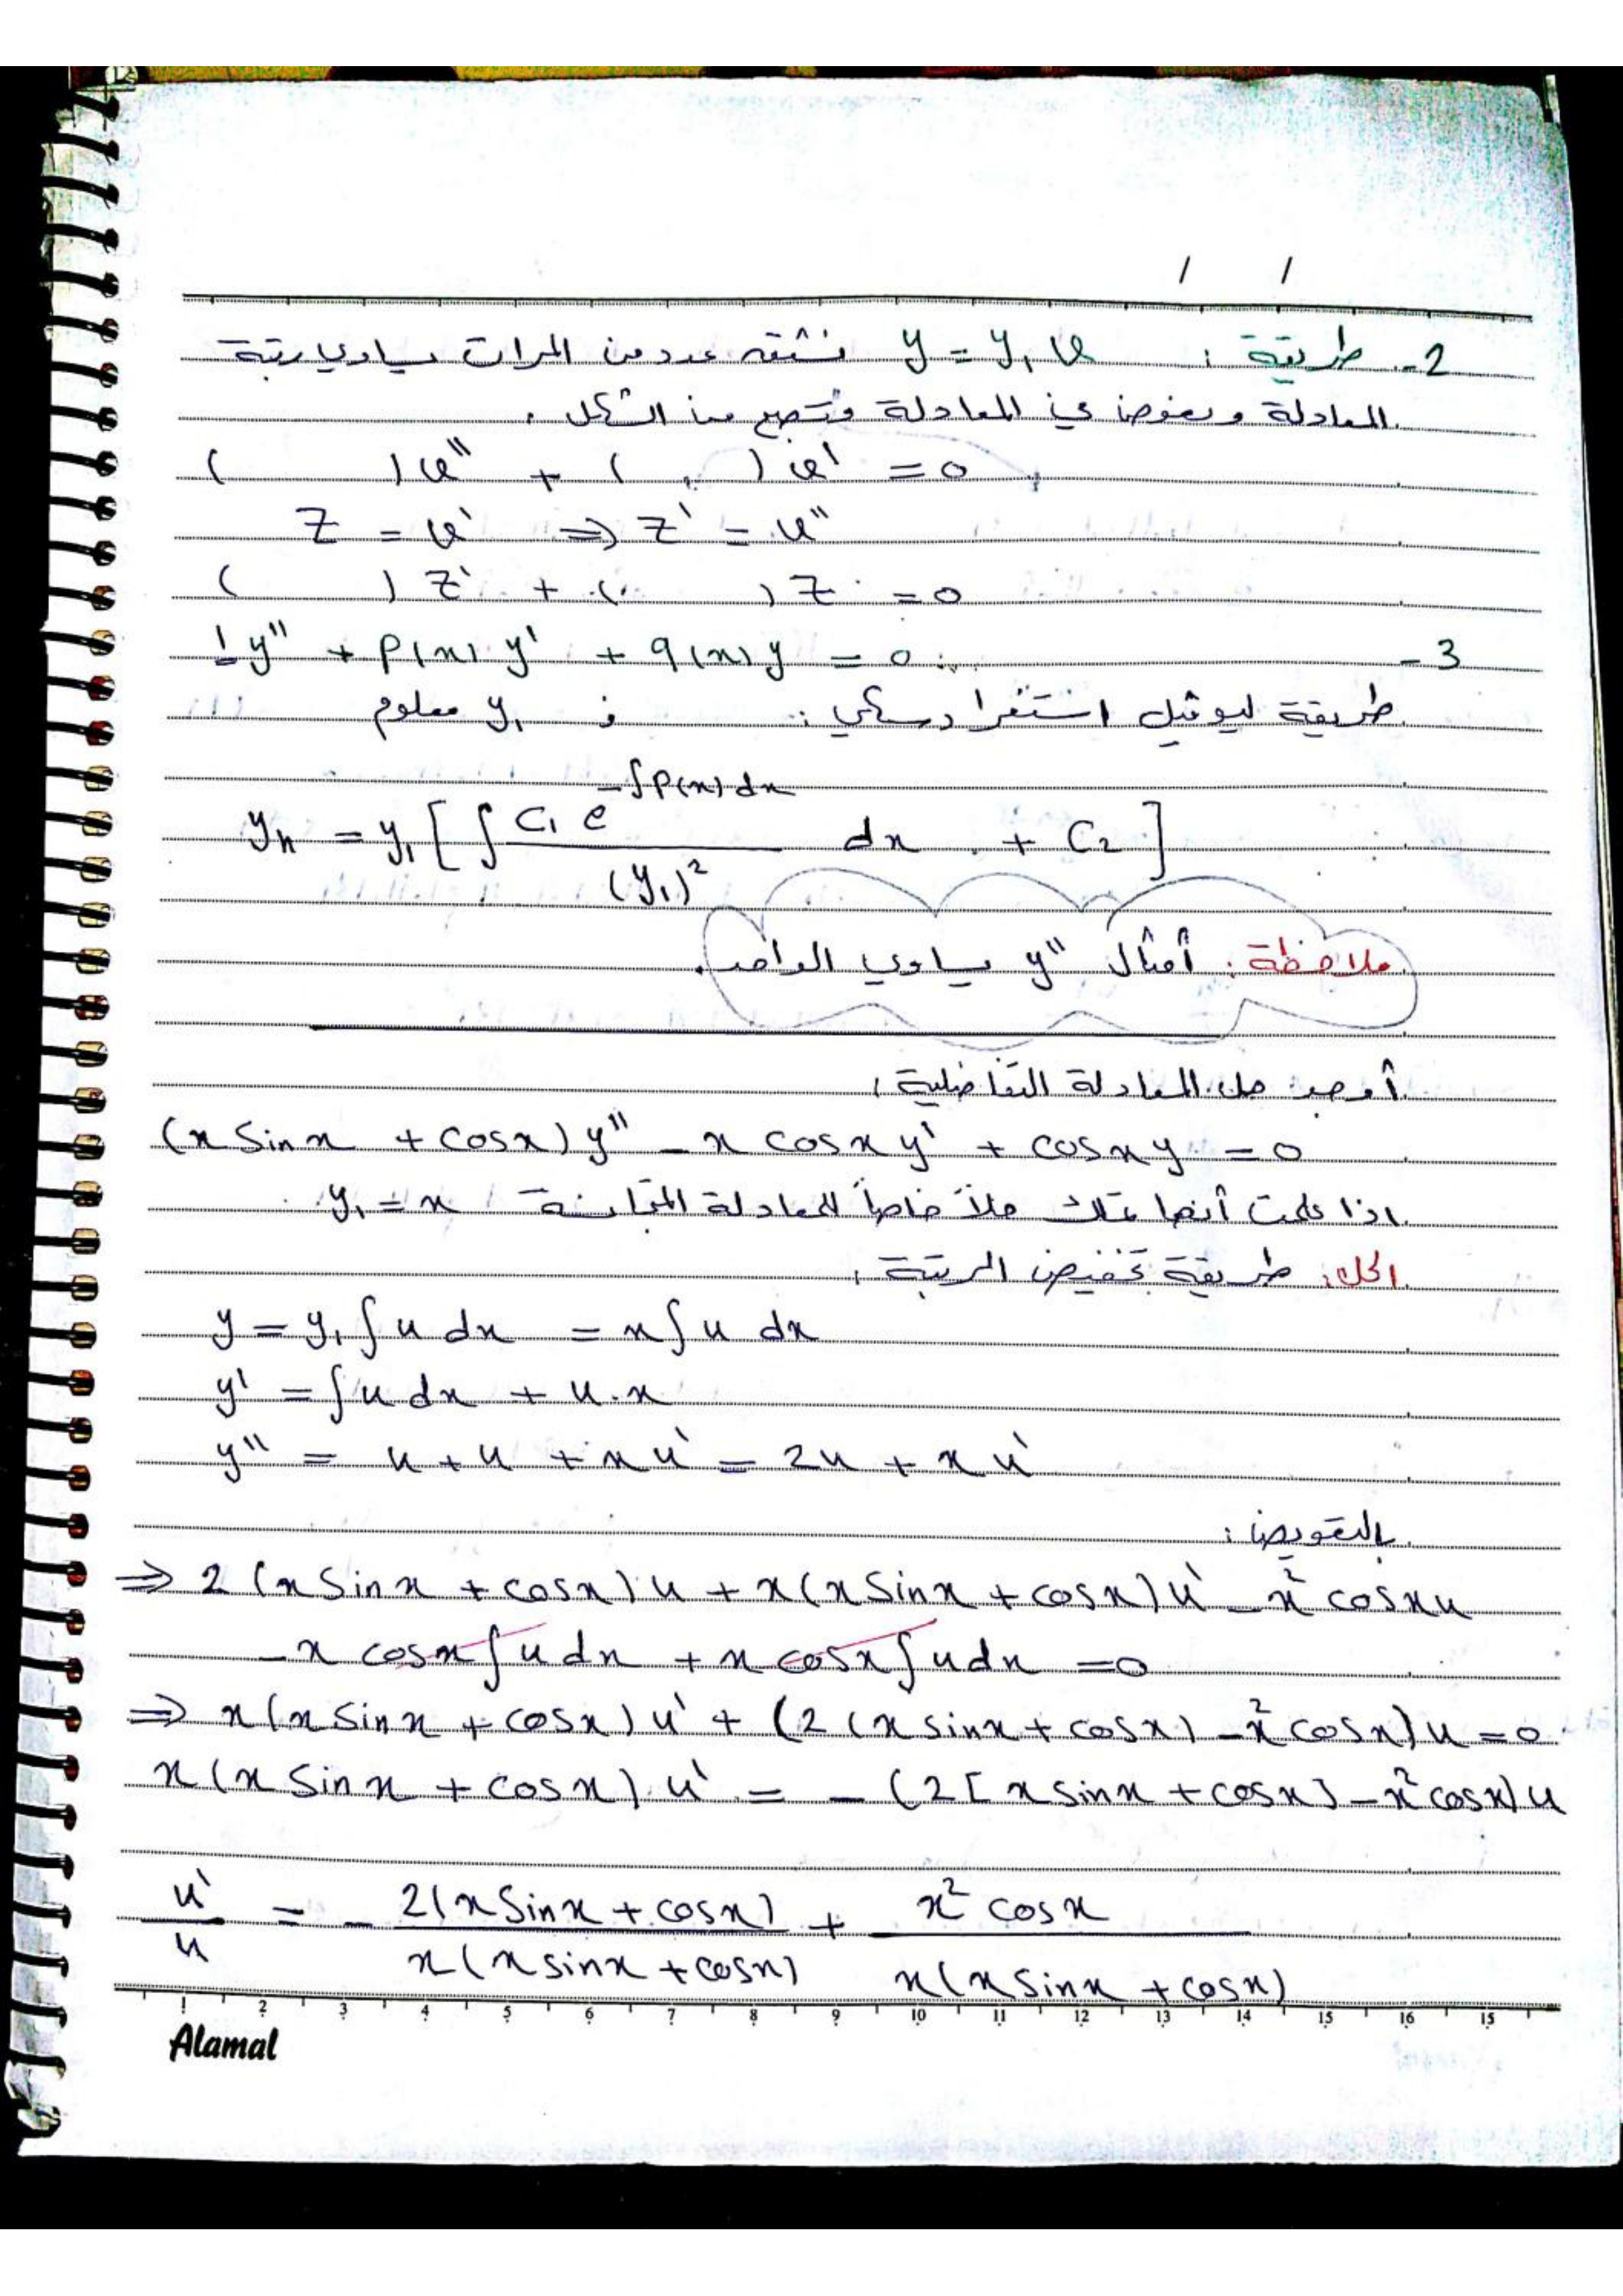 / /
2- طريقة : y = y₁ v نشتق عدد من المرات يساوي رتبة
المعادلة ونعوض في المعادلة وتصبح من الشكل .
( ) v'' + ( ) v' = 0
z = v' ⇒ z' = v''
( ) z' + ( ) z = 0
3- 1 y'' + P(x) y' + q(x) y = 0
طريقة ليوفيل استغرادسكي : y₁ معلوم
yₕ = y₁ [ ∫ C₁ e^(-∫P(x) dx) / (y₁)² dx + C₂ ]
ملاحظة : أمثال y'' يساوي الواحد .
أوجد حل المعادلة التفاضلية :
(x sin x + cos x) y'' - x cos x y' + cos x y = 0
اذا علمت أنها تملك حلاً خاصاً للمعادلة المتجانسة y₁ = x
الحل : طريقة تخفيض الرتبة :
y = y₁ ∫ u dx = x ∫ u dx
y' = ∫ u dx + u . x
y'' = u + u + x u' = 2u + x u'
بالتعويض :
⇒ 2 (x sin x + cos x) u + x (x sin x + cos x) u' - x² cos x u
- x cos x ∫ u dx + x cos x ∫ u dx = 0
⇒ x (x sin x + cos x) u' + (2 (x sin x + cos x) - x² cos x) u = 0
x (x sin x + cos x) . u' = - (2 [x sin x + cos x] - x² cos x) u
u' / u = - 2(x sin x + cos x) / x (x sin x + cos x) + x² cos x / x (x sin x + cos x)
1 2 3 4 5 6 7 8 9 10 11 12 13 14 15 16 15
Alamal